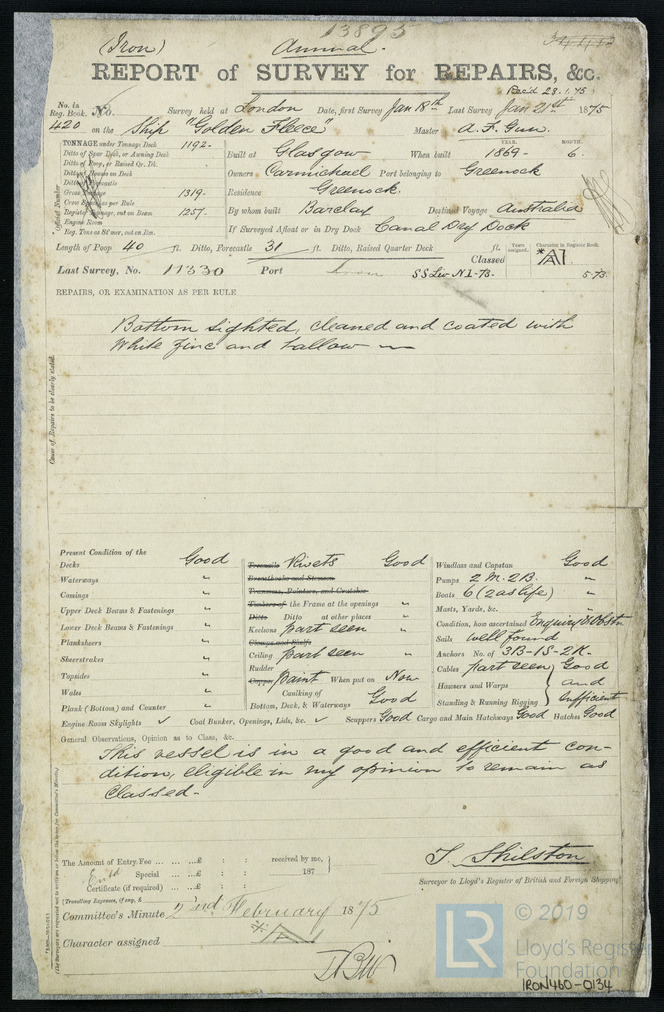 13895
(Iron) Annual.
REPORT of SURVEY for REPAIRS, &c.
Rec'd 28.1.75
No. in Reg. Book. No. Survey held at London Date, first Survey Jan 18th Last Survey Jan 21st 1875
420 on the Ship "Golden Fleece" Master A. F. Gun.
TONNAGE under Tonnage Deck 1192-
Ditto of Spar Deck, or Awning Deck
Ditto of Poop, or Raised Qr. Dk.
Ditto of Houses on Deck
Ditto of Forecastle
Gross Tonnage 1319-
Crew Spaces as per Rule
Register Tonnage, cut on Beam 1257-
Engine Room
Reg. Tons as St'mer, cut on Bm.
Built at Glasgow When built YEAR. 1869- MONTH. 6.
Owners Carmichael Port belonging to Greenock
Residence Greenock.
By whom built Barclay Destined Voyage Australia
If Surveyed Afloat or in Dry Dock Canal Dry Dock
Length of Poop 40 ft. Ditto, Forecastle 31 ft. Ditto, Raised Quarter Deck ft.
Years assigned. Character in Register Book.
Classed *A1
Last Survey, No. 11330 Port SS Liv N1-73- 5.73-
REPAIRS, OR EXAMINATION AS PER RULE
Bottom sighted, cleaned and coated with
White Zinc and tallow
Cause of Repairs to be clearly stated.
Present Condition of the
Decks Good
Waterways "
Comings "
Upper Deck Beams & Fastenings "
Lower Deck Beams & Fastenings "
Planksheers "
Sheerstrakes "
Topsides "
Wales "
Plank (Bottom) and Counter "
Treenails Rivets Good
Breasthooks and Stemson
Transoms, Pointers, and Crutches
Timbers of the Frame at the openings "
Ditto Ditto at other places "
Keelsons part seen "
Clamps and Shelfs
Ceiling part seen "
Rudder "
Copper paint When put on Now
Caulking of
Bottom, Deck, & Waterways Good
Windlass and Capstan Good
Pumps 2 M. 2B. "
Boats 6 (2 as life) "
Masts, Yards, &c. "
Condition, how ascertained Enquiry & Obstn
Sails well found
Anchors No. of 3B-1S-2K.
Cables part seen } Good
Hawsers and Warps and
Standing & Running Rigging Sufficient
Engine Room Skylights ✓ Coal Bunker, Openings, Lids, &c. ✓ Scuppers Good Cargo and Main Hatchways Good Hatches Good
General Observations, Opinion as to Class, &c.
This vessel is in a good and efficient con-
dition, eligible in my opinion to remain as
Classed-
The Amount of Entry Fee ... £ : : received by me,
Special ... £ : : 187
Certificate (if required) ... £ : :
(Travelling Expenses, if any, £
T. Shilston
Surveyor to Lloyd's Register of British and Foreign Shipping
Committee's Minute 2nd February 1875
Character assigned *A1
© 2019
LR Lloyd's Register
Foundation
IRON460-0134